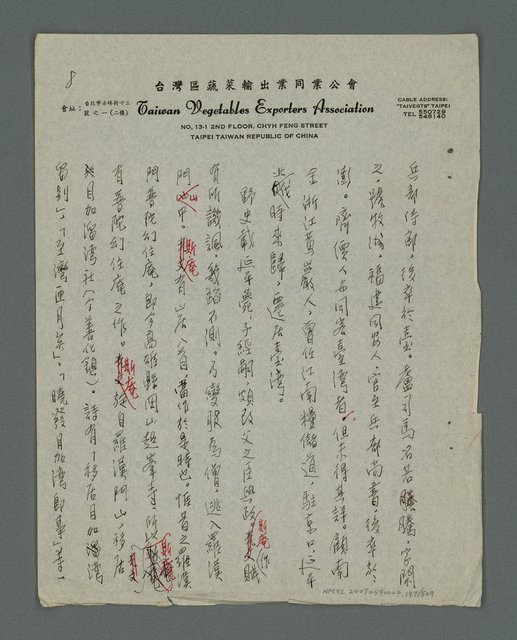 8
台灣區蔬菜輸出業同業公會
會址：台北市赤峰街十三號之一(二樓)
Taiwan Vegetables Exporters Association
NO, 13-1 2ND FLOOR, CHYH FENG STREET
TAIPEI TAIWAN REPUBLIC OF CHINA
CABLE ADDRESS:
"TAIVEGTS" TAIPEI
TEL 550729
548140
兵部侍郎，後卒於臺。盧司馬名若騰，字閑
之，號牧洲，福建同安人，官至兵部尚書，後卒於
澎。齊價人亦同客臺灣者，但未得其詳。顧南
金浙江黃巖人，曾任江南糧儲道，駐京口，延平
北伐時來歸，遷居臺灣。
野史載延平薨，子經嗣，頗改父之臣與政。斯庵作賦
有所譏諷，幾蹈不測。乃變服為僧，逃入羅漢
門山中。斯庵有山居八首，當作於是時也。惟昔之羅漢
門普陀幻住庵，即今高雄縣岡山超峯寺，所以斯庵
有普陀幻住庵之作。斯庵
自羅漢門山，移居
目加溜灣社(今善化鎮)。詩有「移居目加溜灣
留別」，「至灣匝月矣」，「曉發目加灣即事」等。
NMTL 20070590002, 197/509